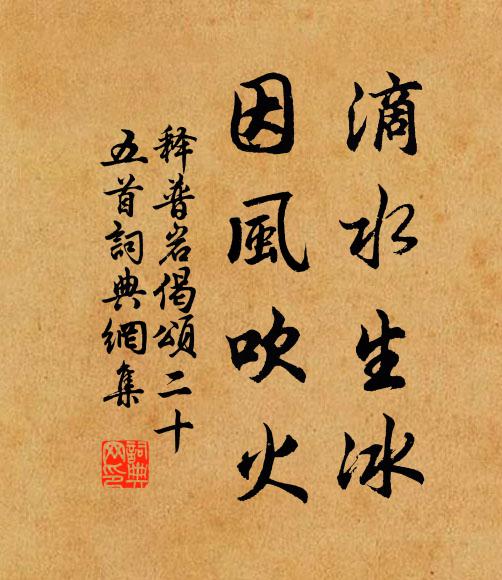 滴水生冰
因風吹火
释普岩偈頌二十
五首詞典網集
詞典网印